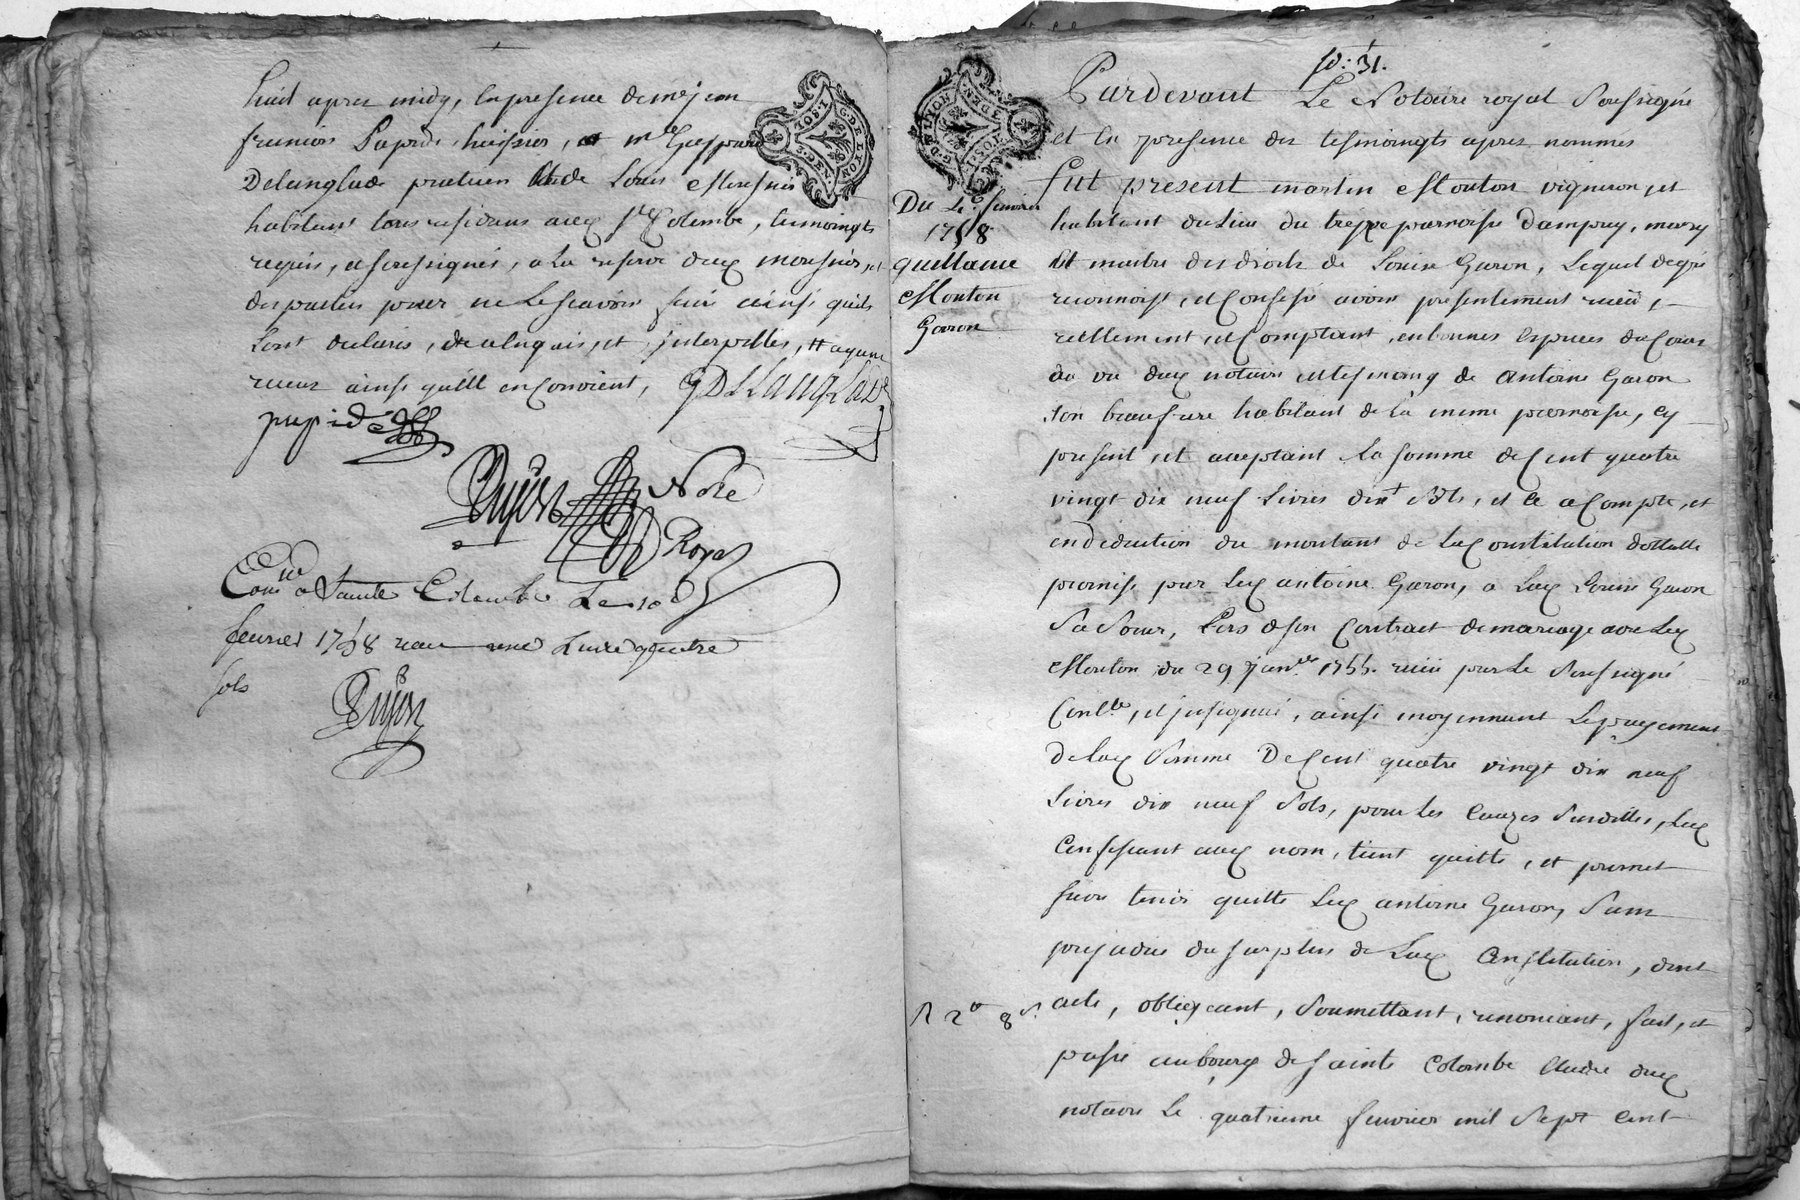 huit apres midy, en presence de me jean
francois papide huissier, et me Gaspard
Delanglade praticien
habitant tous residans audt Ste Colombe, temoingts
requis, et soussignés, a la reserve dudt
des parties pour ne le scavoir faire ainsi quils
ont declaré, de ce enquis, et interpellés,
ainsi quil en convient, GDelanglade
papide
Dujon Nore
Royal
Conlé a Sainte Colombe Le 10e
fevrier 1758 recu une Livre quatre
sols
Dujon
G. DE LYON
fo: 31.
Du 4e fevrier
1758
quittance
Mouton
Garon
R 2lt 8s.
Pardevant Le Notaire royal Soussigné
et en presence des tesmoingts apres nommés
fut present martin Mouton vigneron, et
habitant du Lieu du treve parroisse Dampuy, mary
et maitre des droits de Louise Garon, Lequel de gré
reconnoist, et Confesse avoir presentement receu,
reellement, et Comptant, en bonnes Especes du Cours
au vu dudt notaire et tesmoing de antoine Garon
son beaufrere habitant de la meme parroisse, cy
present, et acceptant la somme de Cent quatre
vingt dix neuf Livres dixt Sols, et ce a Compte, et
en deduction du montant de la Constitution dottalle
promise par Led antoine Garon, a Lad Louise Garon
Sa Soeur, Lors de son Contract de mariage avec Led
Mouton du 29 janer 1755. receu par Le Soussigné
Conlle, et insignué, ainsi moyennant Le payement
de lad Somme De Cent quatre vingt dix neuf
Livres dix neuf Sols, pour les Causes Susdittes, Led
Confessant audt nom, tient quitte, et promet
faire tenir quitte Led antoine Garon, Sans
prejudice du surplus de Lad Constitution, dont
acte, obligeant, Soumettant, renonciant, fait, et
passé au bourg de Sainte Colombe Etude dudt
notaire Le quatrieme fevrier mil Sept Cent